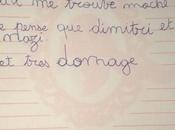 me trouve moche
e pense que dimitri et
mozi.
et tros domage